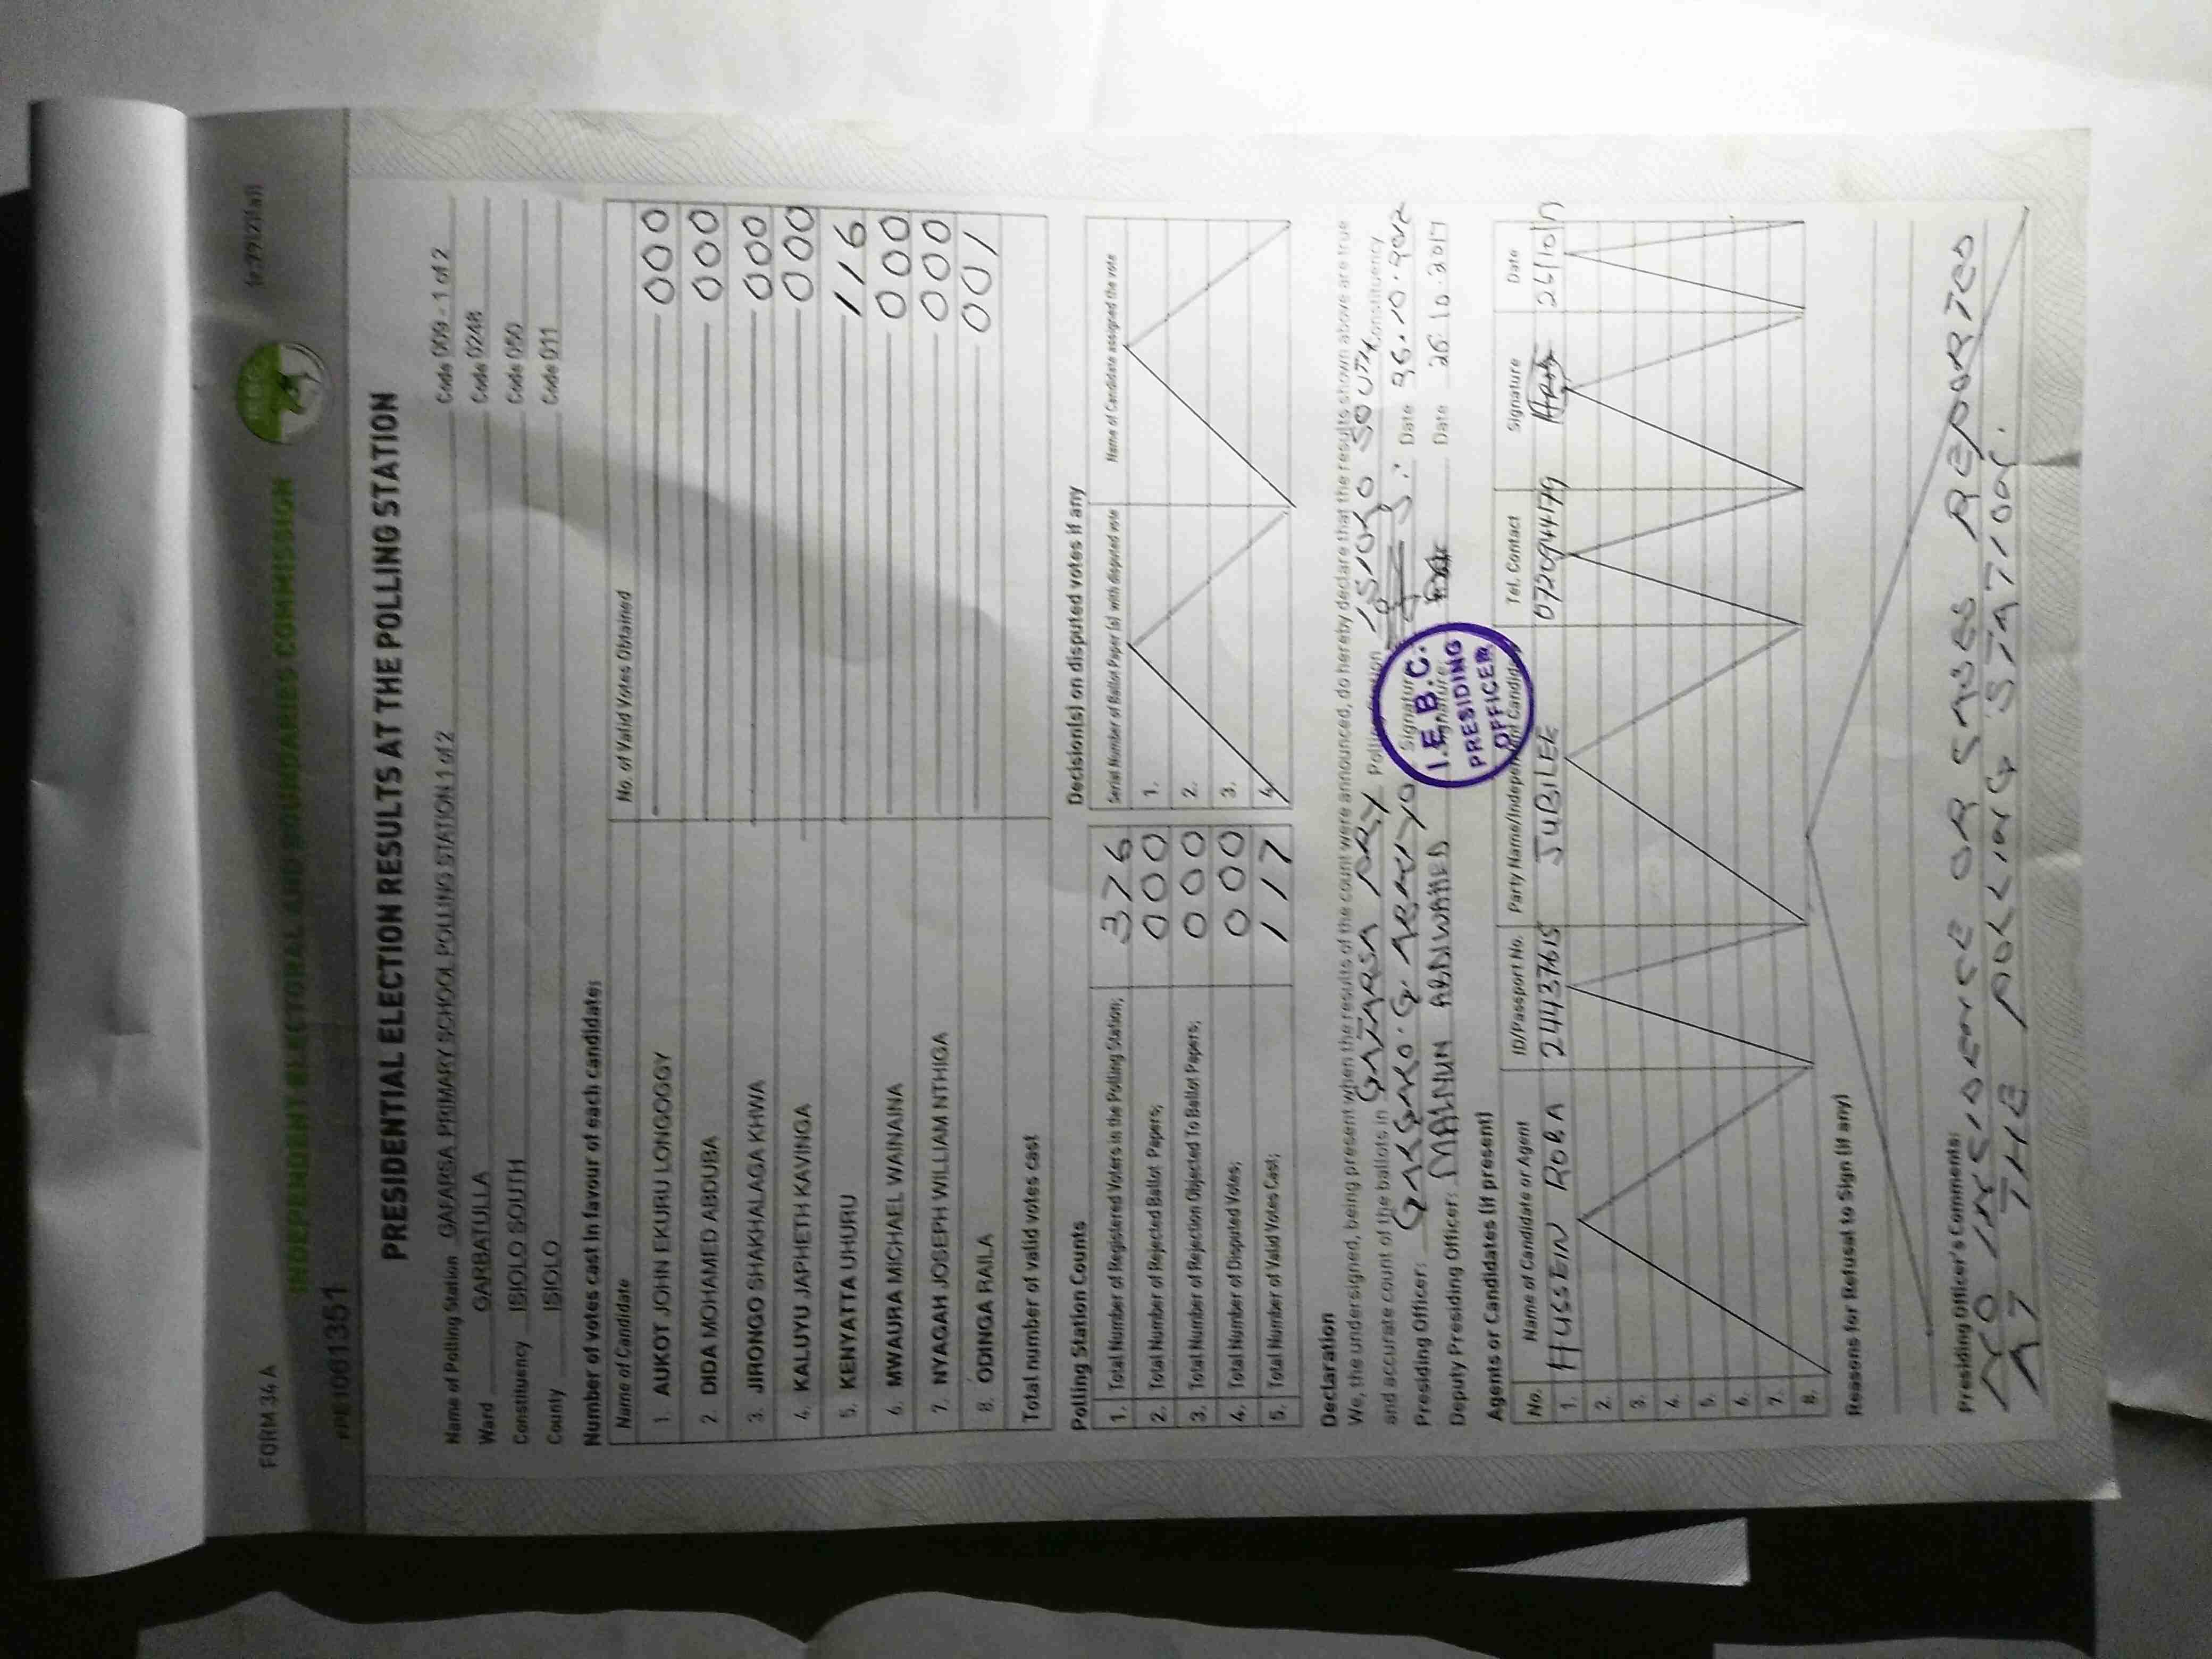 FORM 34 A
INDEPENDENT ELECTORAL AND BOUNDARIES COMMISSION
IEBC
PRESIDENTIAL ELECTION RESULTS AT THE POLLING STATION
Name of Polling Station GAFARSA PRIMARY SCHOOL POLLING STATION 1 of 2 Code 009 - 1 of 2
Ward GARBATULLA Code 0248
Constituency ISIOLO SOUTH Code 050
County ISIOLO Code 011
Number of votes cast in favour of each candidate:
Name of Candidate No. of Valid Votes Obtained
1. AUKOT JOHN EKURU LONGOGGY 000
2. DIDA MOHAMED ABDUBA 000
3. JIRONGO SHAKHALAGA KHWA 000
4. KALUYU JAPHETH KAVINGA 000
5. KENYATTA UHURU 116
6. MWAURA MICHAEL WAINAINA 000
7. NYAGAH JOSEPH WILLIAM NTHIGA 000
8. ODINGA RAILA 001
Total number of valid votes cast
Polling Station Counts
1. Total Number of Registered Voters in the Polling Station; 376
2. Total Number of Rejected Ballot Papers; 000
3. Total Number of Rejection Objected To Ballot Papers; 000
4. Total Number of Disputed Votes; 000
5. Total Number of Valid Votes Cast; 117
Decision(s) on disputed votes if any
Serial Number of Ballot Paper (s) with disputed vote Name of Candidate assigned the vote
1.
2.
3.
4.
Declaration
We, the undersigned, being present when the results of the count were announced, do hereby declare that the results shown above are true
and accurate count of the ballots in GAFARSA PRY Polling Station ISIOLO SOUTH Constituency
Presiding Officer: Signature Date
Deputy Presiding Officer: MAALNUN ABDIWAHED Signature Date 26.10.2017
I.E.B.C. PRESIDING OFFICER
Agents or Candidates (if present)
No. Name of Candidate or Agent ID/Passport No. Party Name/Independent Candidate Tel. Contact Signature Date
1. HUSSEIN ROBA 24437615 JUBILEE 0720944179 26/10/17
2.
3.
4.
5.
6.
7.
8.
Reasons for Refusal to Sign (if any)
Presiding Officer's Comments:
NO INSIDENCE OR SNUES REPORTED
AT THE POLLING STATION.